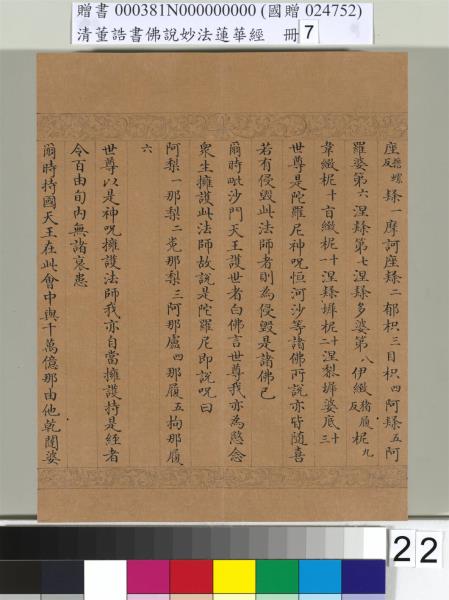 贈書 000381N000000000 (國贈 024752)
清董誥書佛說妙法蓮華經 冊 7
座誓螺反隸一摩訶座隸二郁枳三目枳四阿隸五阿
羅婆第六涅隸第七涅隸多婆第八伊緻猪履反柅九
韋緻柅十旨緻柅十一涅隸墀柅十二涅犁墀婆底十三
世尊是陀羅尼神呪恒河沙等諸佛所說亦皆隨喜
若有侵毀此法師者則為侵毀是諸佛已
爾時毗沙門天王護世者白佛言世尊我亦為愍念
衆生擁護此法師故說是陀羅尼即說呪曰
阿梨一那梨二㝹那梨三阿那盧四那履五拘那履
六
世尊以是神呪擁護法師我亦自當擁護持是經者
令百由旬內無諸衰患
爾時持國天王在此會中與千萬億那由他乾闥婆
22